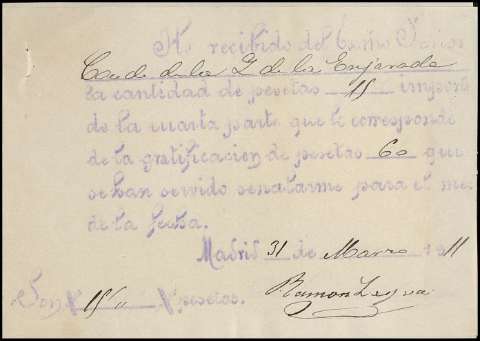 He recibido del Exmo Señor
Conde de la Z de la Enjarada
la cantidad de pesetas 15 import
de la cuarta parte que le corresponde
de la gratificacion de pesetas 60 que
se han servido señalarme para el me
de la fecha.
Madrid 31 de Marzo 1911
Son # 15 # pesetas. Ramon Leyva